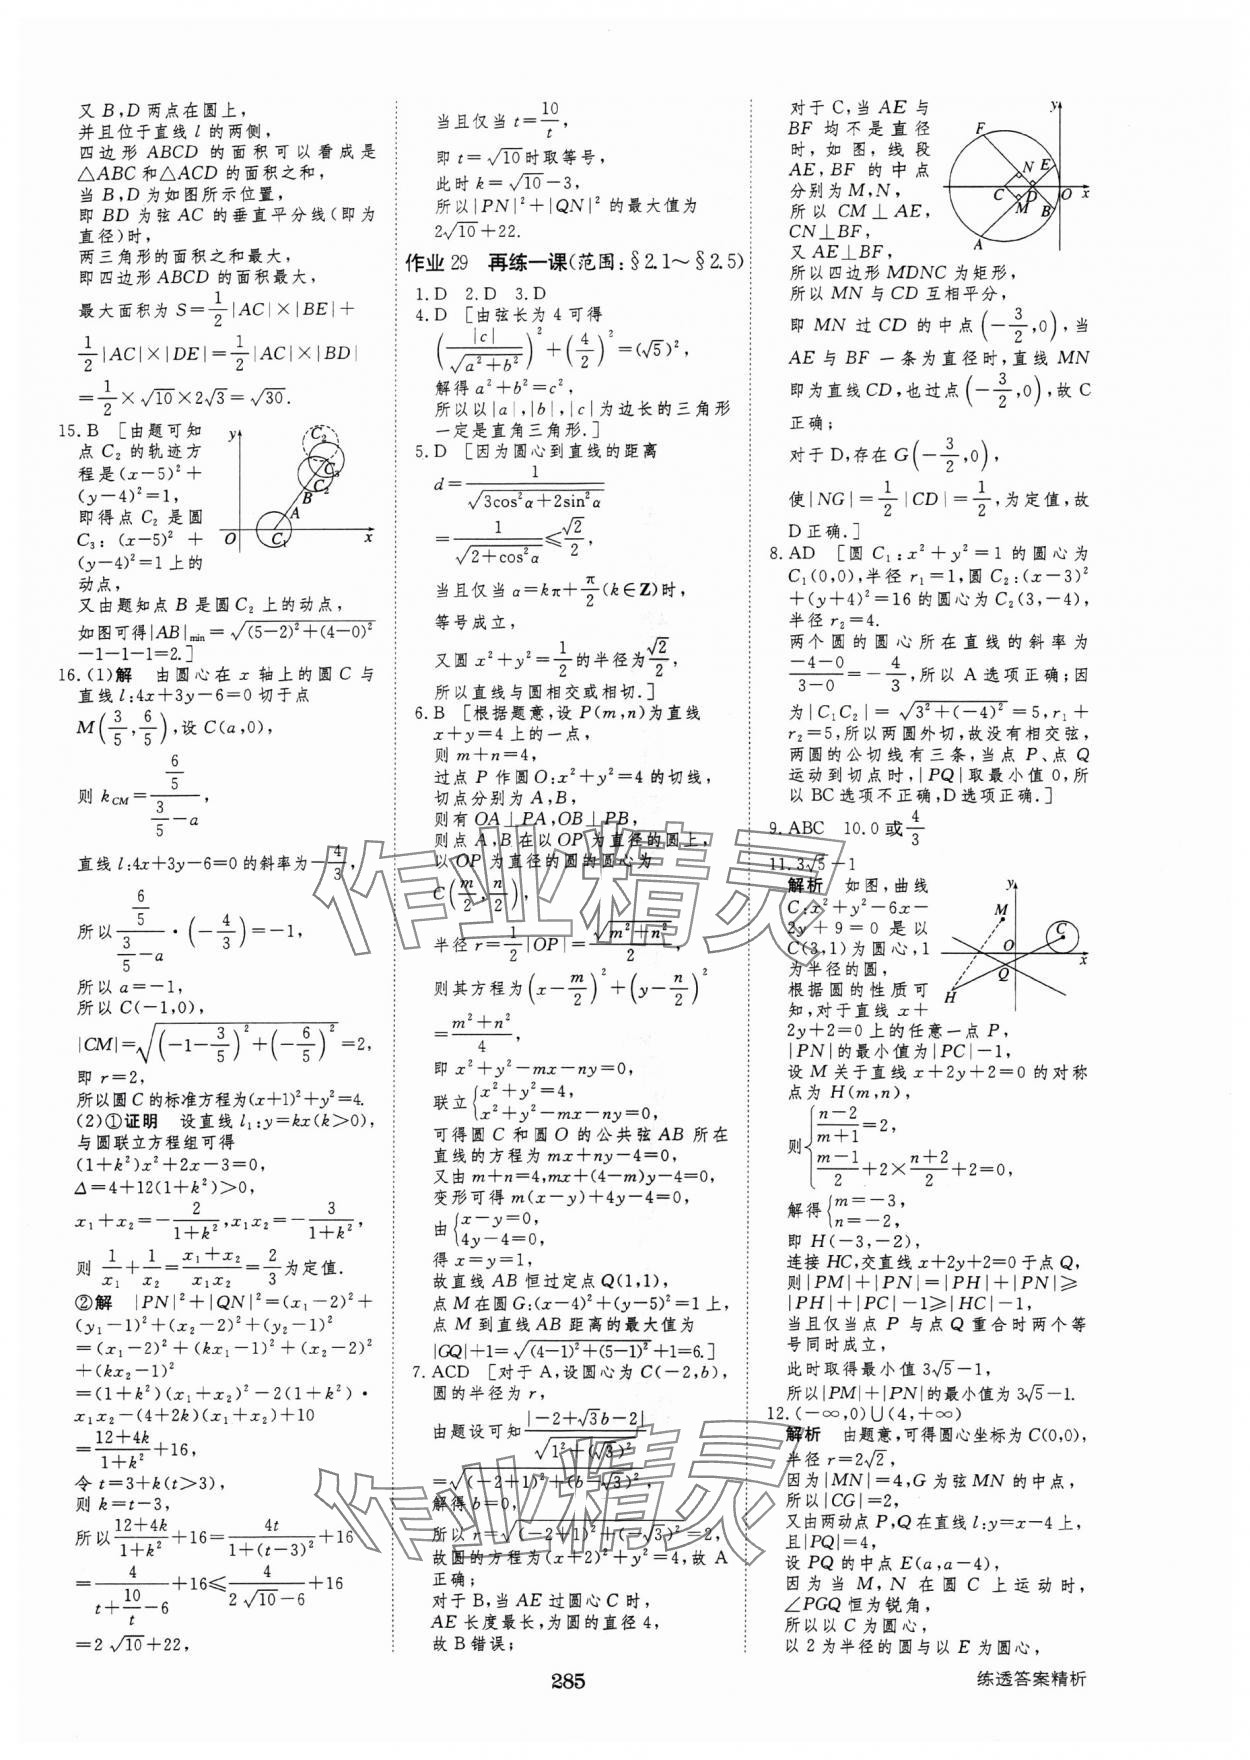 又 B,D 两点在圆上,
并且位于直线 l 的两侧,
四边形 ABCD 的面积可以看成是
△ABC 和△ACD 的面积之和,
当 B,D 为如图所示位置,
即 BD 为弦 AC 的垂直平分线(即为
直径)时,
两三角形的面积之和最大,
即四边形 ABCD 的面积最大,
最大面积为 S=1/2|AC|×|BE|+
1/2|AC|×|DE|=1/2|AC|×|BD|
=1/2×√10×2√3=√30.
15.B [由题可知
点 C₂ 的轨迹方
程是(x-5)²+
(y-4)²=1,
即得点 C₂ 是圆
C₃:(x-5)²+
(y-4)²=1 上的
动点,
又由题知点 B 是圆 C₂ 上的动点,
如图可得|AB|min=√((5-2)²+(4-0)²)
-1-1-1=2.]
16.(1)解 由圆心在 x 轴上的圆 C 与
直线 l:4x+3y-6=0 切于点
M(3/5,6/5),设 C(a,0),
则 kCM=(6/5)/(3/5-a),
直线 l:4x+3y-6=0 的斜率为-4/3,
所以(6/5)/(3/5-a)·(-4/3)=-1,
所以 a=-1,
所以 C(-1,0),
|CM|=√((-1-3/5)²+(-6/5)²)=2,
即 r=2,
所以圆 C 的标准方程为(x+1)²+y²=4.
(2)①证明 设直线 l₁:y=kx(k>0),
与圆联立方程组可得
(1+k²)x²+2x-3=0,
Δ=4+12(1+k²)>0,
x₁+x₂=-2/(1+k²),x₁x₂=-3/(1+k²),
则 1/x₁+1/x₂=(x₁+x₂)/(x₁x₂)=2/3为定值.
②解 |PN|²+|QN|²=(x₁-2)²+
(y₁-1)²+(x₂-2)²+(y₂-1)²
=(x₁-2)²+(kx₁-1)²+(x₂-2)²
+(kx₂-1)²
=(1+k²)(x₁+x₂)²-2(1+k²)·
x₁x₂-(4+2k)(x₁+x₂)+10
=(12+4k)/(1+k²)+16,
令 t=3+k(t>3),
则 k=t-3,
所以(12+4k)/(1+k²)+16=4t/(1+(t-3)²)+16
=4/(t+10/t-6)+16≤4/(2√10-6)+16
=2√10+22,
当且仅当 t=10/t,
即 t=√10时取等号,
此时 k=√10-3,
所以|PN|²+|QN|² 的最大值为
2√10+22.
作业 29 再练一课(范围:§2.1~§2.5)
1.D 2.D 3.D
4.D [由弦长为 4 可得
(|c|/√(a²+b²))²+(4/2)²=(√5)²,
解得 a²+b²=c²,
所以以|a|,|b|,|c|为边长的三角形
一定是直角三角形.]
5.D [因为圆心到直线的距离
d=1/√(3cos²α+2sin²α)
=1/√(2+cos²α)≤√2/2,
当且仅当 α=kπ+π/2(k∈Z)时,
等号成立,
又圆 x²+y²=1/2的半径为√2/2,
所以直线与圆相交或相切.]
6.B [根据题意,设 P(m,n)为直线
x+y=4 上的一点,
则 m+n=4,
过点 P 作圆O:x²+y²=4 的切线,
切点分别为 A,B,
则有 OA⊥PA,OB⊥PB,
则点 A,B 在以 OP 为直径的圆上,
以 OP 为直径的圆的圆心为
C(m/2,n/2),
半径 r=1/2|OP|=√(m²+n²)/2,
则其方程为(x-m/2)²+(y-n/2)²
=(m²+n²)/4,
即 x²+y²-mx-ny=0,
联立{x²+y²=4, x²+y²-mx-ny=0,
可得圆 C 和圆 O 的公共弦 AB 所在
直线的方程为 mx+ny-4=0,
又由 m+n=4,mx+(4-m)y-4=0,
变形可得 m(x-y)+4y-4=0,
由{x-y=0, 4y-4=0,
得 x=y=1,
故直线 AB 恒过定点 Q(1,1),
点 M 在圆 G:(x-4)²+(y-5)²=1 上,
点 M 到直线 AB 距离的最大值为
|GQ|+1=√((4-1)²+(5-1)²)+1=6.]
7.ACD [对于 A,设圆心为 C(-2,b),
圆的半径为 r,
由题设可知|-2+√3b-2|/√(1²+(√3)²)
=√((-2+1)²+(b-√3)²),
解得 b=0,
所以 r=√((-2+1)²+(-√3)²)=2,
故圆的方程为(x+2)²+y²=4,故 A
正确;
对于 B,当 AE 过圆心 C 时,
AE 长度最长,为圆的直径 4,
故 B 错误;
对于 C,当 AE 与
BF 均不是直径
时,如图,线段
AE,BF 的中点
分别为 M,N,
所以 CM⊥AE,
CN⊥BF,
又 AE⊥BF,
所以四边形 MDNC 为矩形,
所以 MN 与 CD 互相平分,
即 MN 过 CD 的中点(-3/2,0),当
AE 与 BF 一条为直径时,直线 MN
即为直线 CD,也过点(-3/2,0),故 C
正确;
对于 D,存在 G(-3/2,0),
使|NG|=1/2|CD|=1/2,为定值,故
D 正确.]
8.AD [圆 C₁:x²+y²=1 的圆心为
C₁(0,0),半径 r₁=1,圆 C₂:(x-3)²
+(y+4)²=16 的圆心为 C₂(3,-4),
半径 r₂=4.
两个圆的圆心所在直线的斜率为
(-4-0)/(3-0)=-4/3,所以 A 选项正确;因
为|C₁C₂|=√(3²+(-4)²)=5,r₁+
r₂=5,所以两圆外切,故没有相交弦,
两圆的公切线有三条,当点 P、点 Q
运动到切点时,|PQ|取最小值 0,所
以 BC 选项不正确,D选项正确.]
9.ABC 10.0 或4/3
11.3√5-1
解析 如图,曲线
C:x²+y²-6x-
2y+9=0 是以
C(3,1)为圆心,1
为半径的圆,
根据圆的性质可
知,对于直线 x+
2y+2=0 上的任意一点 P,
|PN|的最小值为|PC|-1,
设 M 关于直线 x+2y+2=0 的对称
点为 H(m,n),
则{(n-2)/(m+1)=2, (m-1)/2+2×(n+2)/2+2=0,
解得{m=-3, n=-2,
即 H(-3,-2),
连接 HC,交直线 x+2y+2=0 于点 Q,
则|PM|+|PN|=|PH|+|PN|≥
|PH|+|PC|-1≥|HC|-1,
当且仅当点 P 与点 Q 重合时两个等
号同时成立,
此时取得最小值 3√5-1,
所以|PM|+|PN|的最小值为 3√5-1.
12.(-∞,0)∪(4,+∞)
解析 由题意,可得圆心坐标为 C(0,0),
半径 r=2√2,
因为|MN|=4,G 为弦 MN 的中点,
所以|CG|=2,
又由两动点 P,Q 在直线 l:y=x-4 上,
且|PQ|=4,
设 PQ 的中点 E(a,a-4),
因为当 M,N 在圆 C 上运动时,
∠PGQ 恒为锐角,
所以以 C 为圆心,
以 2 为半径的圆与以 E 为圆心,
285
练透答案精析
作业精灵
作业精灵